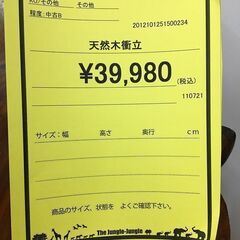 KD/その他 その他
程度:中古B
2012101251500234
天然木衝立
¥39,980(税込)
110721
サイズ:幅 高さ 奥行 cm
商品のサイズ、状態を よくご確認下さい。
The Jungle-Jungle